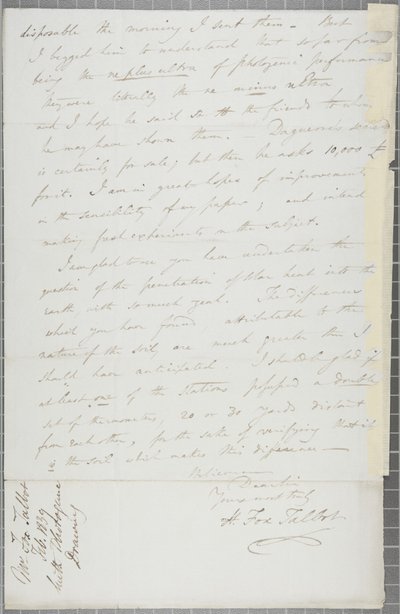 disposable the morning I sent them – But
I begged him to understand that so far from
being the ne plus ultra of photogenic performance
they were literally the ne minus ultra
and I hope he said so to the friends to whom
he may have shown them. – Daguerre's secret
is certainly for sale; but then he asks 10,000 £
for it. I am in great hopes of improvement
in the sensibility of my paper; and intend
making fresh experiments on the subject.
I am glad to see you have undertaken the
question of the penetration of Solar heat into the
earth with so much zeal. The differences
which you have found, attributable to the
nature of the soil, are much greater than I
should have anticipated. I should be glad if
at least one of the stations possessed a double
set of thermometers, 20 or 30 yards distant
from each other, for the sake of verifying that it
is the soil which makes this difference –
Believe me
Dear Sir
Yours most truly
H. Fox Talbot
Fox Talbot
Feb. 1839
with Photogenic
Drawing